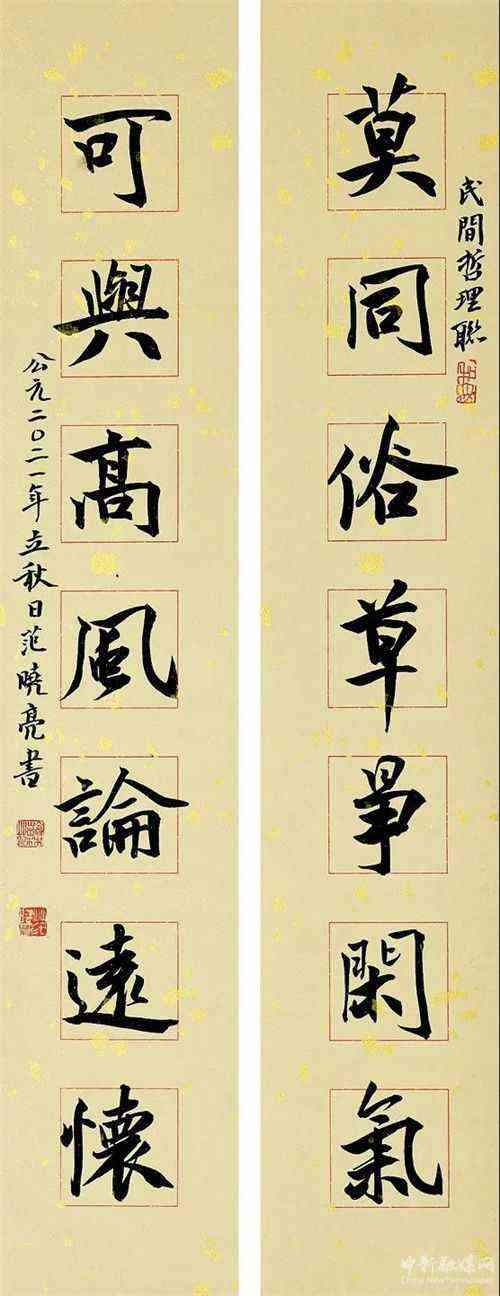 民間哲理聯
莫同俗草爭閑氣
可與髙風論遠懷
公元二〇二一年立秋日范曉亮書